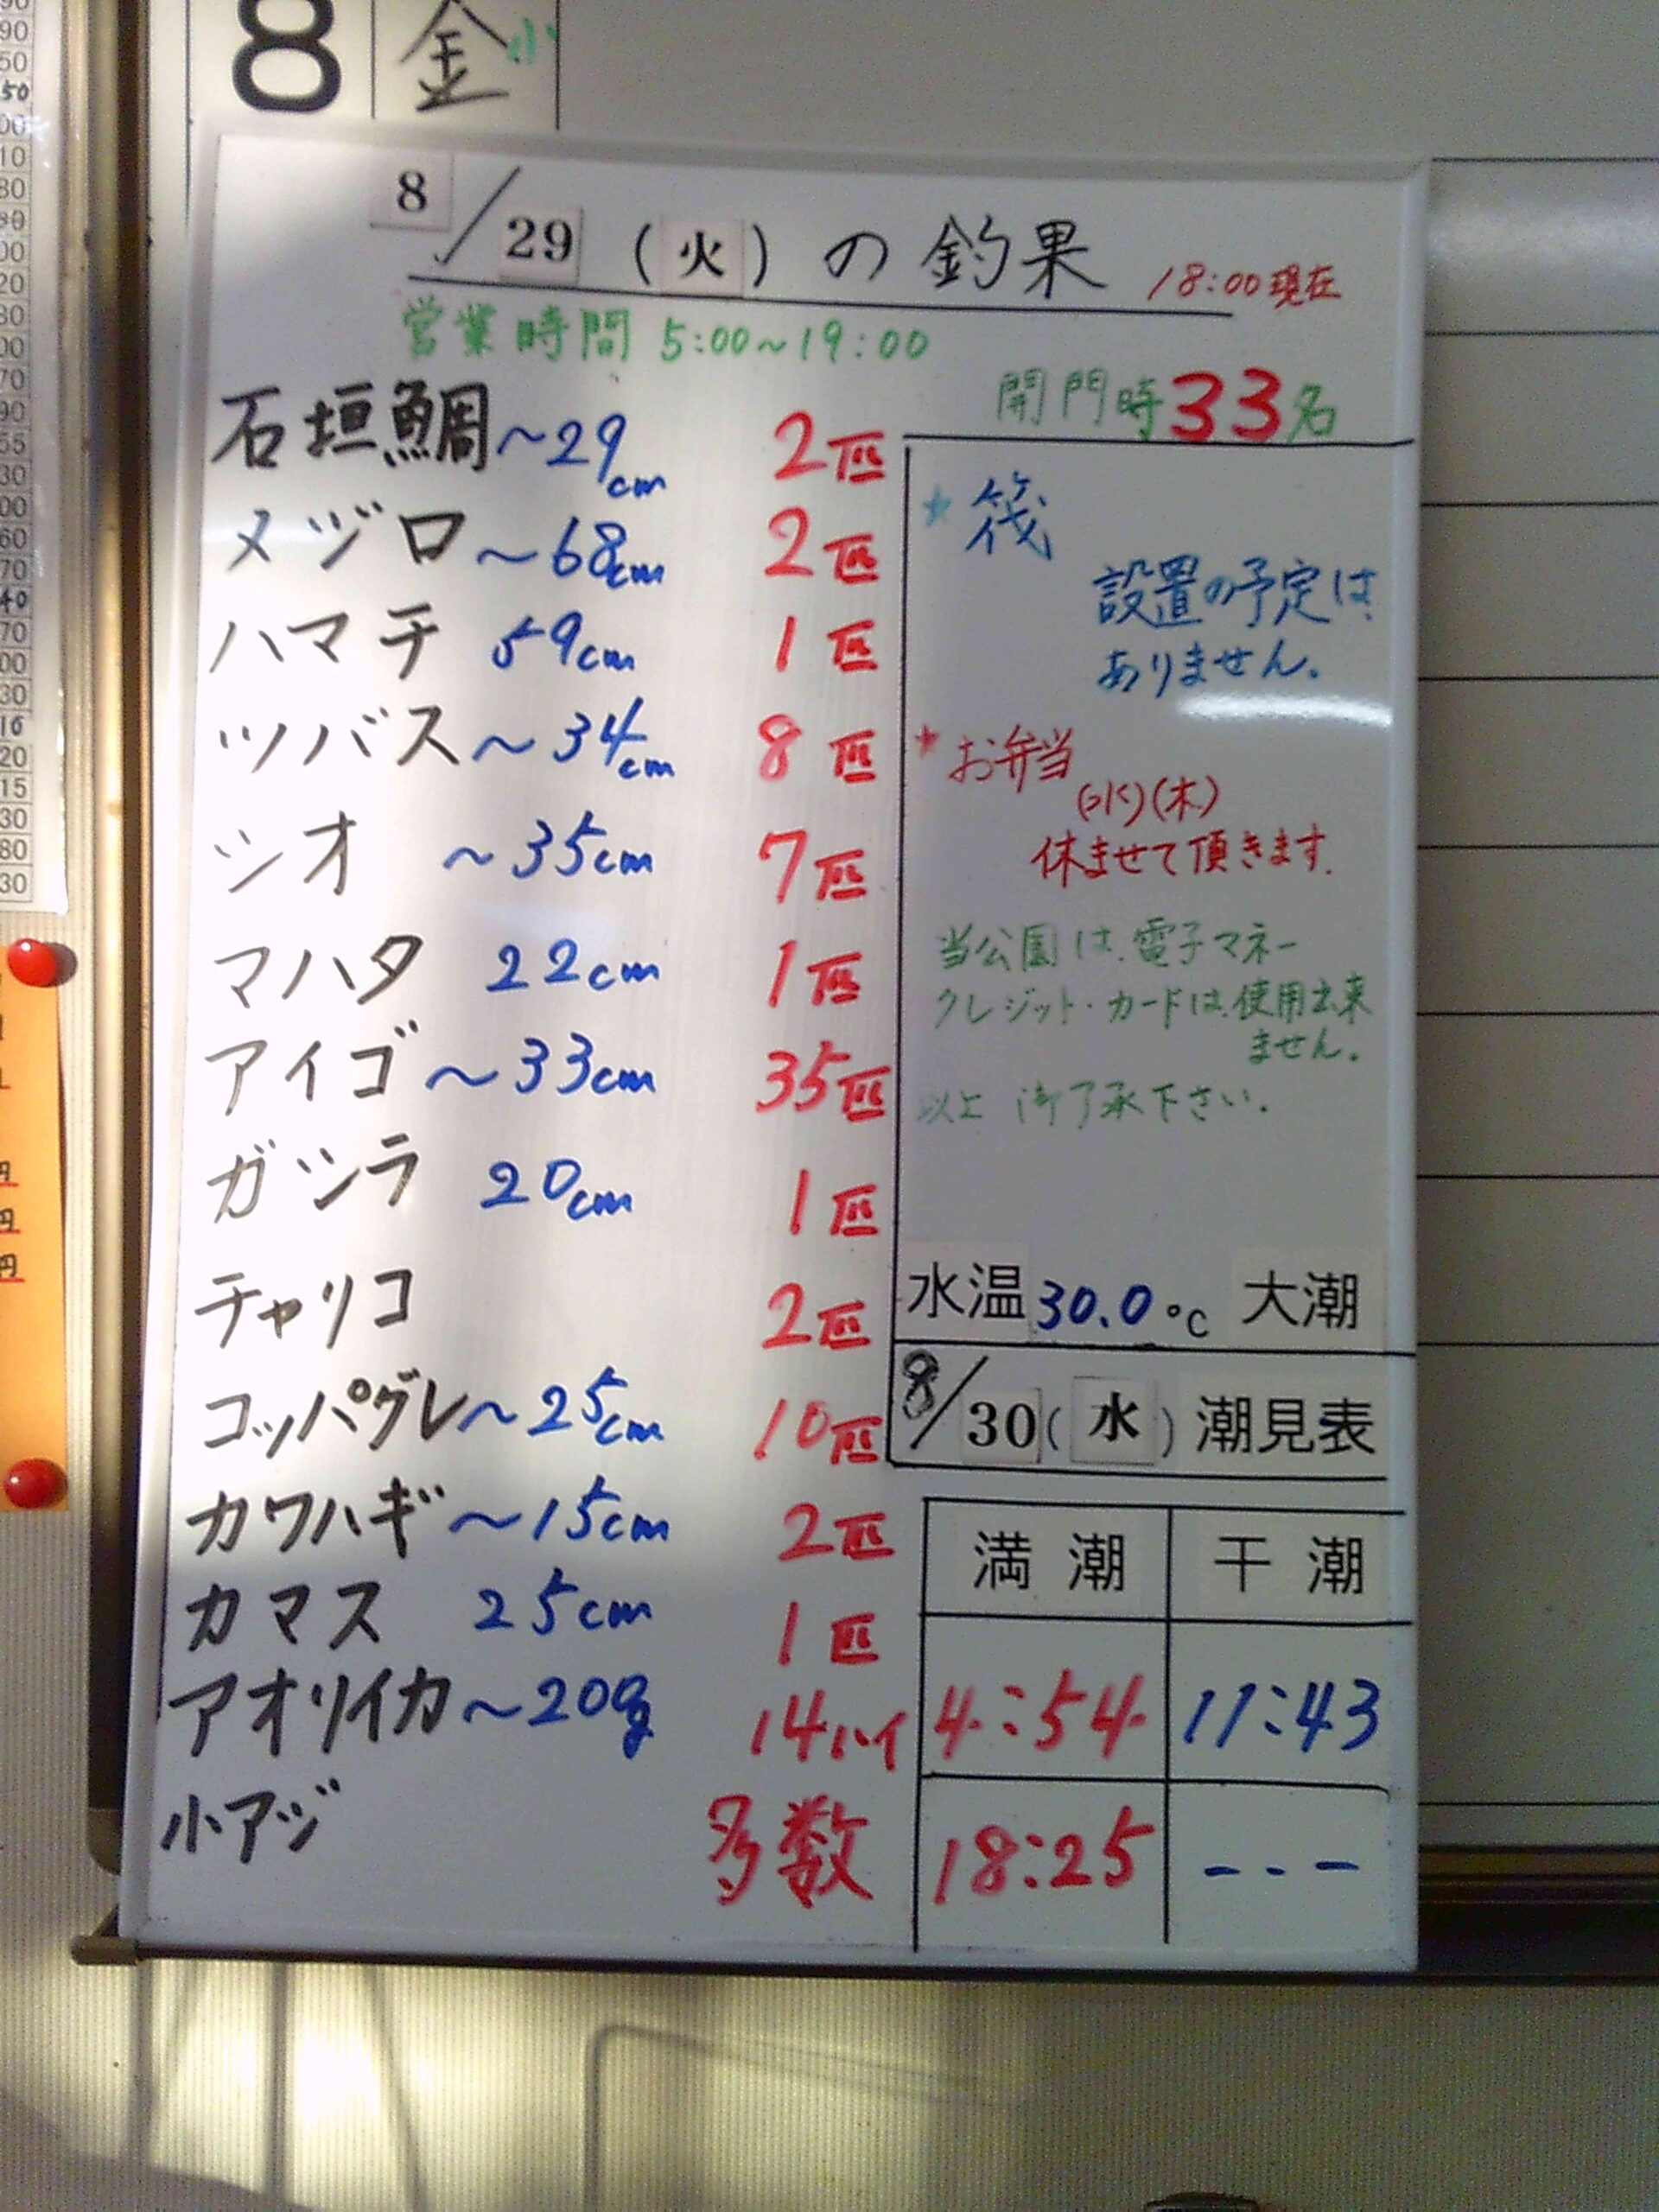 8 金 小
8/29(火)の釣果 18:00現在
営業時間 5:00~19:00
開門時33名
石垣鯛~29cm 2匹
メジロ~68cm 2匹
ハマチ 59cm 1匹
ツバス~34cm 8匹
シオ ~35cm 7匹
マハタ 22cm 1匹
アイゴ~33cm 35匹
ガシラ 20cm 1匹
チャリコ 2匹
コッパグレ~25cm 10匹
カワハギ~15cm 2匹
カマス 25cm 1匹
アオリイカ~20g 14ハイ
小アジ 多数
★筏
設置の予定は
ありません.
★お弁当
(水)(木)
休ませて頂きます.
当公園は.電子マネー
クレジット・カードは.使用出来
ません.
以上 御了承下さい.
水温30.0℃ 大潮
8/30(水)潮見表
満潮 干潮
4:54 11:43
18:25 ---